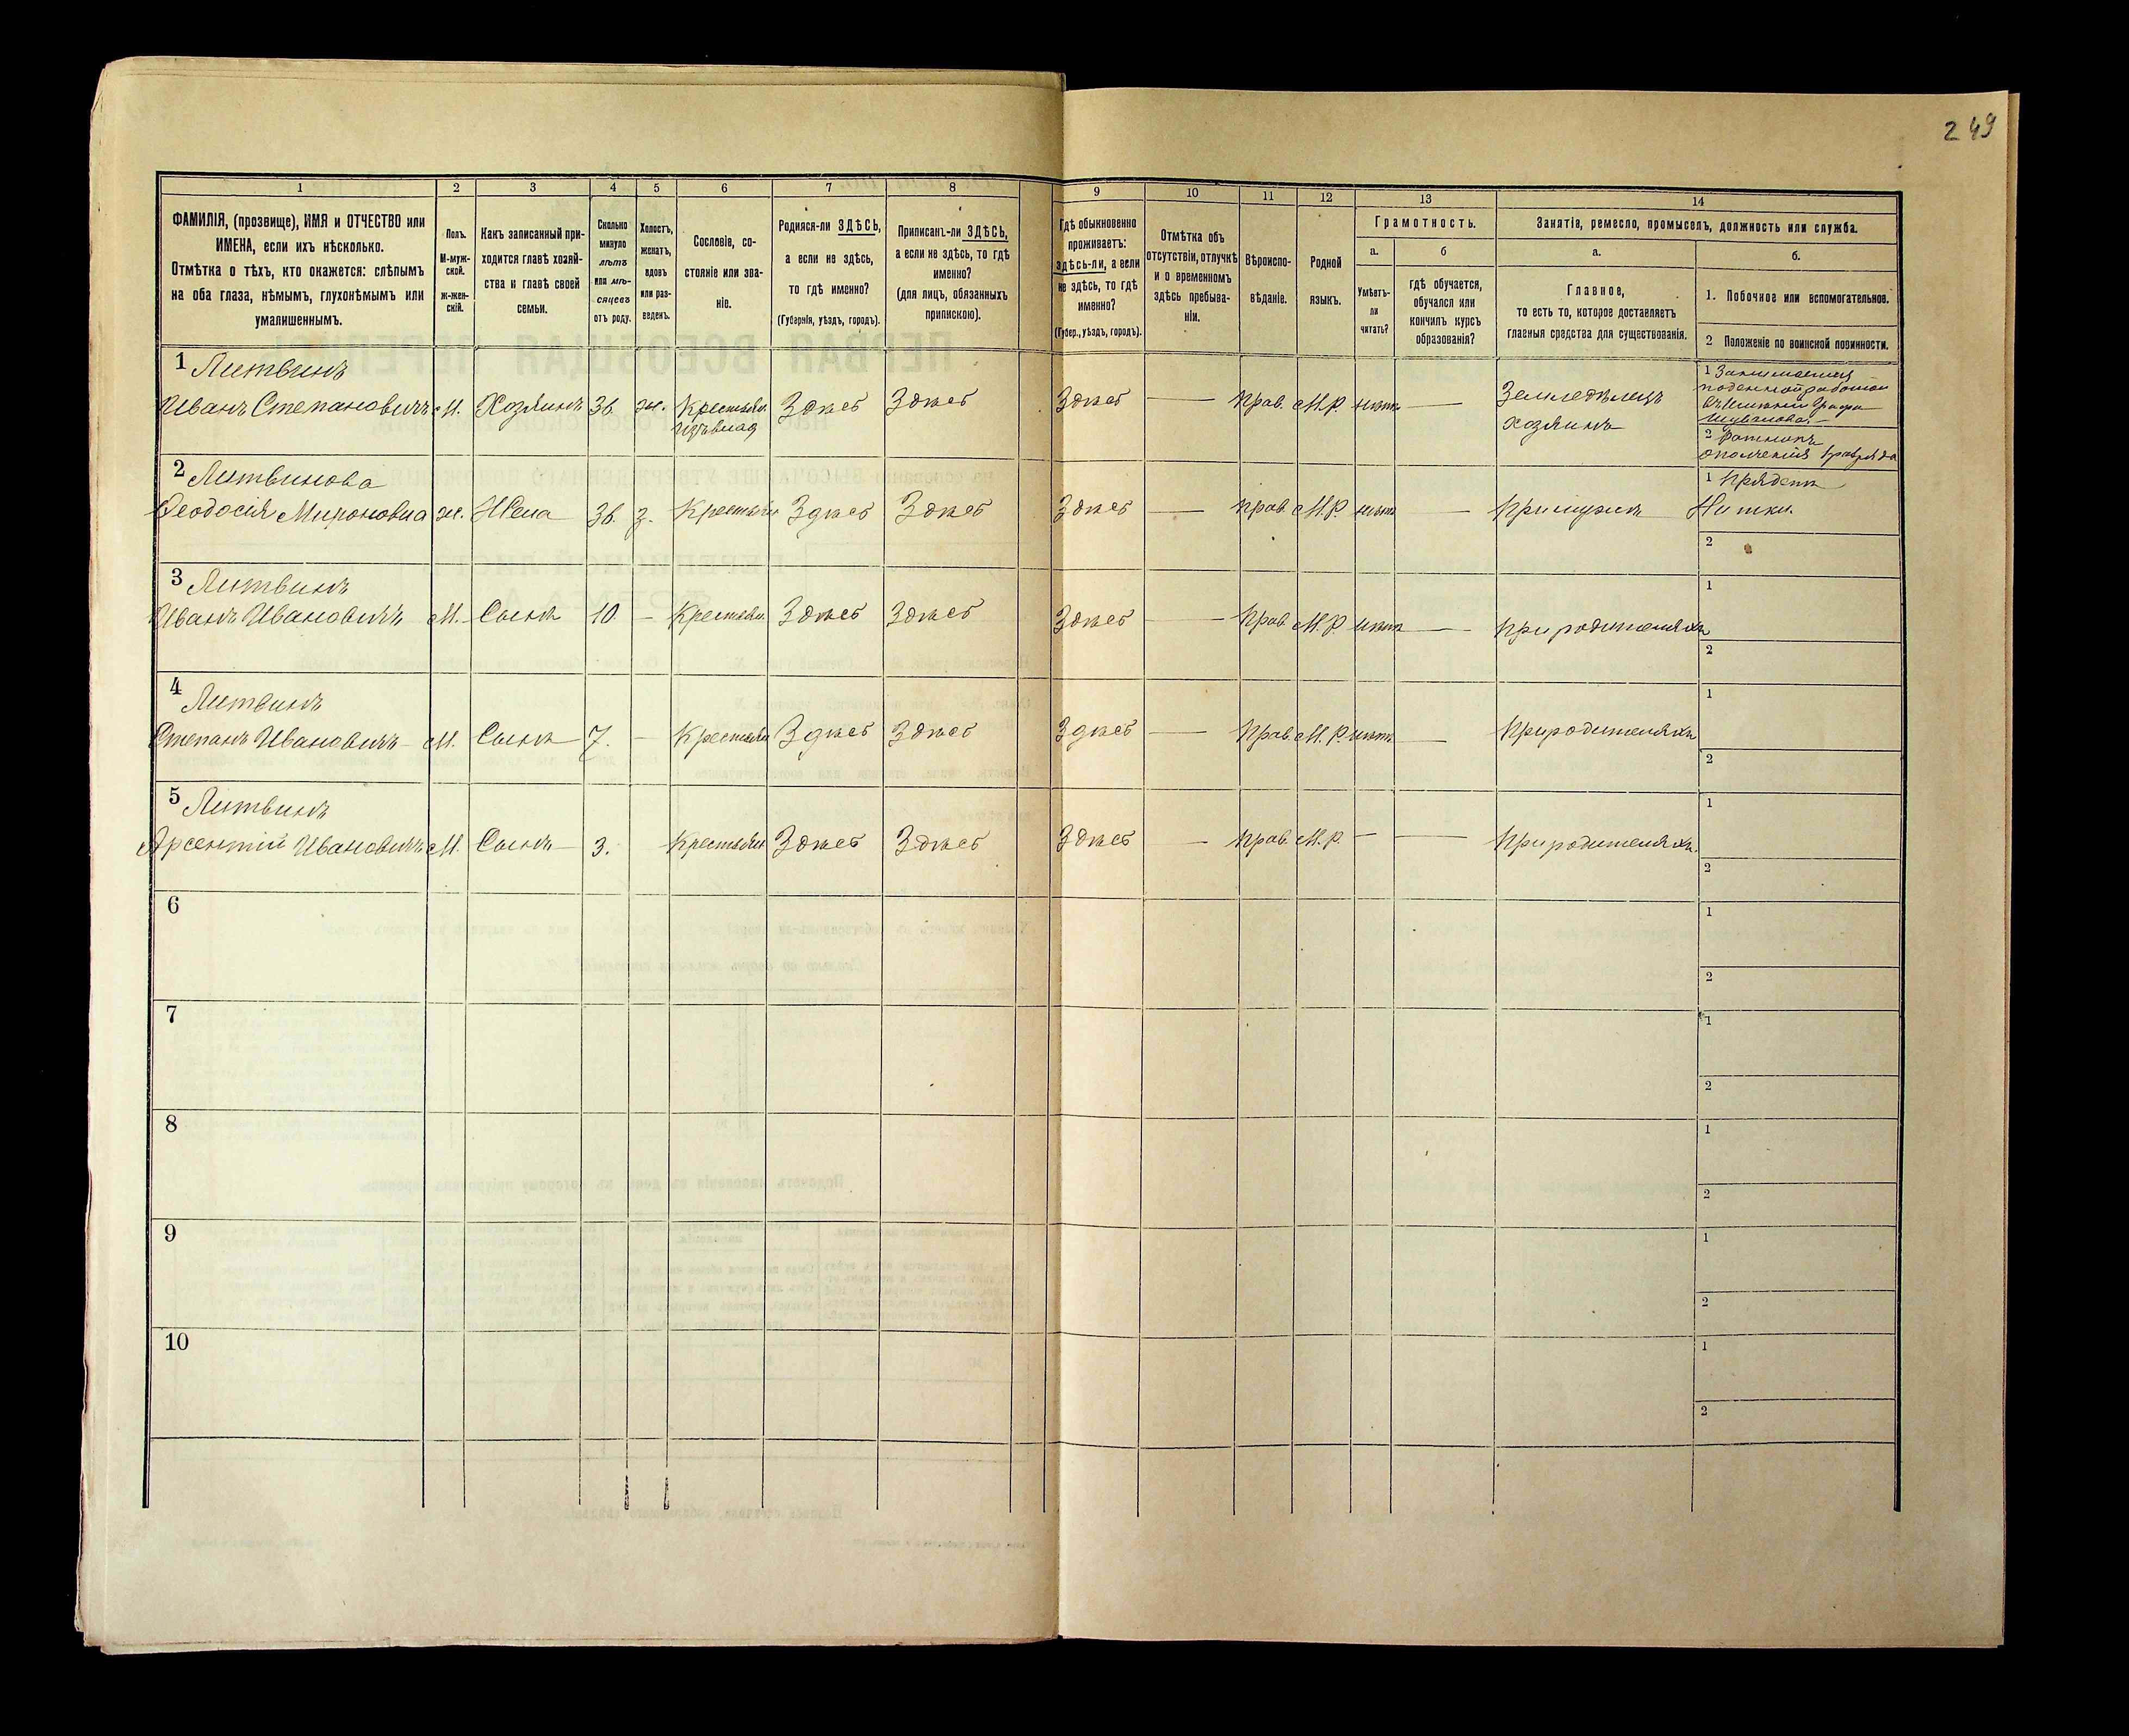 249
1
2
3
4
5
6
7
8
9
10
11
12
13
14
ФАМИЛІЯ, (прозвище), ИМЯ и ОТЧЕСТВО или
ИМЕНА, если ихъ нѣсколько.
Отмѣтка о тѣхъ, кто окажется: слѣпымъ
на оба глаза, нѣмымъ, глухонѣмымъ или
умалишеннымъ.
Полъ.
М-муж-
ской.
ж-жен-
скій.
Какъ записанный при-
ходится главѣ хозяй-
ства и главѣ своей
семьи.
Сколько
минуло
лѣтъ
или мѣ-
сяцевъ
отъ роду.
Холостъ,
женатъ,
вдовъ
или раз-
веденъ.
Сословіе, со-
стояніе или зва-
ніе.
Родился-ли ЗДѢСЬ,
а если не здѣсь,
то гдѣ именно?
(Губернія, уѣздъ, городъ).
Приписанъ-ли ЗДѢСЬ,
а если не здѣсь, то гдѣ
именно?
(для лицъ, обязанныхъ
припискою).
Гдѣ обыкновенно
проживаетъ:
здѣсь-ли, а если
не здѣсь, то гдѣ
именно?
(Губер., уѣздъ, городъ).
Отмѣтка объ
отсутствіи, отлучкѣ
и о временномъ
здѣсь пребыва-
ніи.
Вѣроиспо-
вѣданіе.
Родной
языкъ.
Грамотность.
а.
Умѣетъ-
ли
читать?
б
гдѣ обучается,
обучался или
кончилъ курсъ
образованія?
Занятія, ремесло, промыселъ, должность или служба.
а.
Главное,
то есть то, которое доставляетъ
главныя средства для существованія.
б.
1. Побочное или вспомогательное.
2 Положеніе по воинской повинности.
1 Литвинъ
Иванъ Степановичъ М. Хозяинъ 36. ж. Крестьян. Здѣсь Здѣсь Здѣсь — Прав. М.Р. нѣтъ — Земледѣлецъ
изъ влад
хозяинъ
1 Занимается
поденной работой
въ имѣніи Графа
2 Ратникъ
ополченія 1 разряда
2 Литвинова
Феодосія Мироновна ж. Жена 36. з. Крестьян Здѣсь Здѣсь Здѣсь — Прав. М.Р. нѣтъ — При мужѣ
1 Прядетъ
Нитки.
2
3 Литвинъ
Иванъ Ивановичъ М. Сынъ 10. — Крестьян. Здѣсь Здѣсь Здѣсь — Прав. М.Р. нѣтъ — При родителяхъ
1
2
4 Литвинъ
Степанъ Ивановичъ М. Сынъ 7. — Крестьян Здѣсь Здѣсь Здѣсь — Прав. М.Р. нѣтъ — При родителяхъ
1
2
5 Литвинъ
Арсентій Ивановичъ М. Сынъ 3. Крестьян Здѣсь Здѣсь Здѣсь — Прав. М.Р. — — При родителяхъ.
1
2
6
1
2
7
1
2
8
1
2
9
1
2
10
1
2